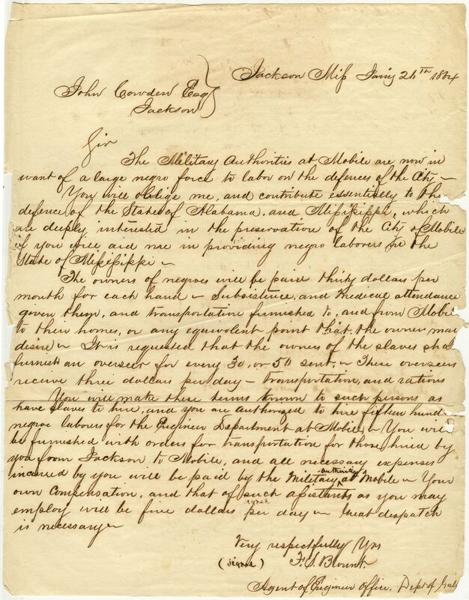 Jackson Miss Jany 24th 1864
John Cowden Esq
Jackson
Sir
The Military Authorities at Mobile are now in
want of a large negro force to labor on the defences of the City —
You will oblige me, and contribute essentially to the
defence of the State of Alabama, and Mississippi, which
are deeply interested in the preservation of the City of Mobile
if you will aid me in providing negro laborers in the
State of Mississippi —
The owners of negroes will be paid thirty dollars per
month for each hand — Subsistence, and medical attendance
given them, and transportation furnished to, and from Mobile
to their homes, or any equivalent point that the owner may
desire — It is requested that the owners of the slaves shall
furnish an overseer for every 30, or 50 sent — These overseers
receive three dollars per day — transportation, and rations
You will make these terms known to such persons as
have slaves to hire, and you are authorised to hire fifteen hund
negro laborers for the Engineer Department at Mobile — You will
be furnished with orders for transportation for those hired by
you from Jackson to Mobile, and all necessary expenses
incured by you will be paid by the Military authority at Mobile — Your
own Compensation, and that of such assistants as you may
employ will be five dollars per day — Great despatch
is necessary —
Very respectfully Yrs
(signed) F. S. Blount
Agent of Engineer Office, Dept of Gulf